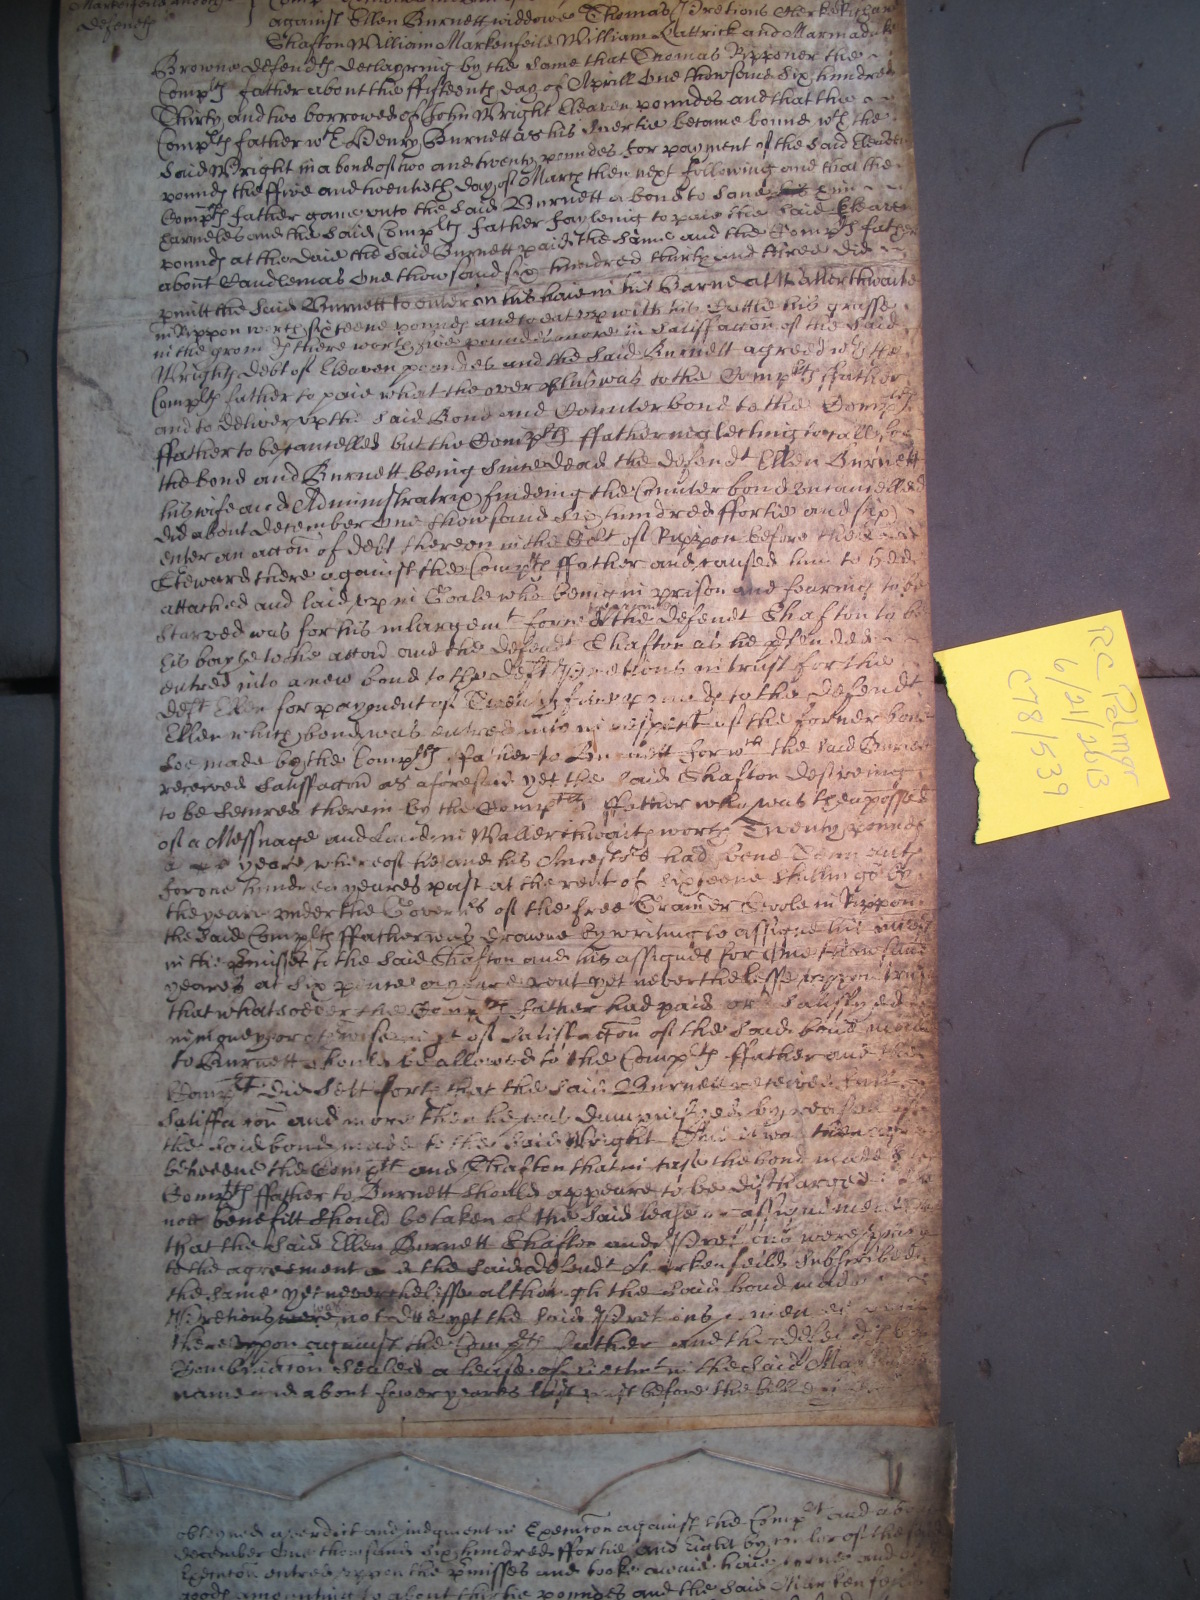 Markenfeild and oth
defend
against Ellen Burnett widdowe Thomas Pretious Clerke Richard
Shafton William Markenfeild William Lattrick and Marmaduke
Browne defendts declareing by the same that Thomas Ripponer the
Complts father about the fifteenth day of Aprill One thowsand Six hundred
Thirty and two borrowed of John Wright Eleaven poundes and that the
Complts father wth Henry Burnett as his suertie became bounde wth the
said Wright in a bond of two and twenty poundes for payment of the said Eleaven
pounds the ffive and twentieth day of March then next following and that the
Complts father gave unto the said Burnett a bond to save him
harmeles and the said Complts father fayleing to paie the said Eleaven
pounds at the daie the said Burnett paid the same and the Complts father
about Candlemas One thowsand six hundred thirty and three did
pmitt the said Burnett to enter on his haie in his Barne at Wallerthwaite
in Rippon worth sixteene pounds and to eat up with his Cattle his grasse
in the ground there worth five pounds more in satisfaccon of the said
Wrights debt of Eleaven poundes and the said Burnett agreed with the
Complts father to paie what the overplus was to the Complts ffather
and to deliver up the said Bond and Counterbond to the Complts
ffather to be cancelled but the Complts ffather neglecting to call for
the bond and Burnett being since dead the defendt Ellen Burnett
his wife and Administratrix findeing the Counter bond uncancelled
did about december One thowsand Six hundred ffortie and six
enter an accon of debt thereon in the Cort of Rippon before the
Steward there against the Complts ffather and caused him to bee
attached and laid up in Goale who being in prison and fearing to be
starved was for his inlargemt forced the defendt Shafton to be
his bayle to the accon and the defendt Shafton as he pretended
entred into a new bond to the deft Pretious in trust for the
deft Ellen for payment of Twenty five pounds to the defendt
Ellen which bond was entred into in respect of the former bond
soe made by the Complts father to Burnett for wch the said Burnett
received satisfaccon as aforesaid yet the said Shafton desireing
to be secured therein by the Complts ffather who was then possessed
of a Messuage and Lands in Wallerthwaite worth Twenty pounds
a yeare whereof he and his Ancestors had bene Tennants
for one hundred yeares past at the rent of Sixteene shillings by
the yeare under the Governrs of the free Gramer Scoole in Rippon
the said Complts ffather was drawne by writing to assigne his interest
in the pmisses to the said Shafton and his assignes for One thowsand
yeares at Six pence a yeare rent yet neverthelesse uppon trust
that whatsoever the Complts father had paid or satisfyed
in money or otherwise in pt of satisfaccon of the said bond made
to Burnett should be allowed to the Complts ffather and the
Complt did sett forth that the said Burnett received full
satisfaccon and more then he was damnifyed by reason of
the said bond made to the said Wright And it was then agreed
betweene the Complt and Shafton that in case the bond made by the
Complts ffather to Burnett should appeare to be discharged
noe benefitt should be taken of the said lease or assignement
that the said Ellen Burnett Shafton and Pretious were privie
to the agreement and the said defendt Markenfeild subscribed
the same yet neverthelesse although the said bond made
Pretious was not due yet the said Pretious
thereuppon against the Complts father and the
Combinacon sealed a lease of ejectmt in the said
name and about fower yeares last past before the bill
obteyned a verdict and judgment in Ejectmt against the Complt and about
december One thowsand six hundred ffortie and eight by color of the said
Execucon entred uppon the pmisses and tooke awaie haie corne and
goods amounting to about thirtie poundes and the said Markenfeild
RC Palmer
6/21/2013
C78/539